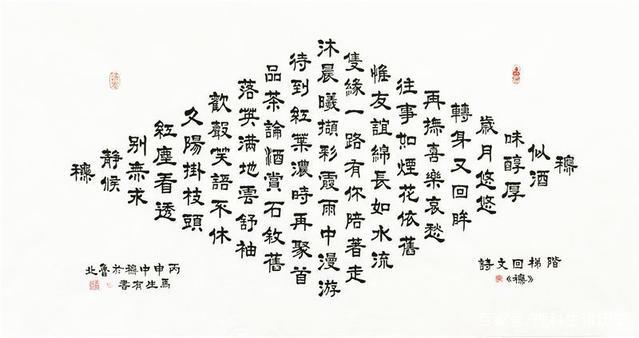 穐
似酒
味醇厚
歲月悠悠
轉身又回眸
再撫喜樂哀愁
往事如煙花依舊
惟友誼綿長如水流
隻緣一路有你陪著走
沐晨曦擷彩霞雨中漫游
待到紅葉濃時再聚首
品茶論酒賞石敘舊
落英满地雲舒袖
歡聲笑語不休
夕陽掛枝頭
紅塵看透
别無求
静候
穐
階梯回文詩
《穐》
丙申中穐於魯北
馬生有書